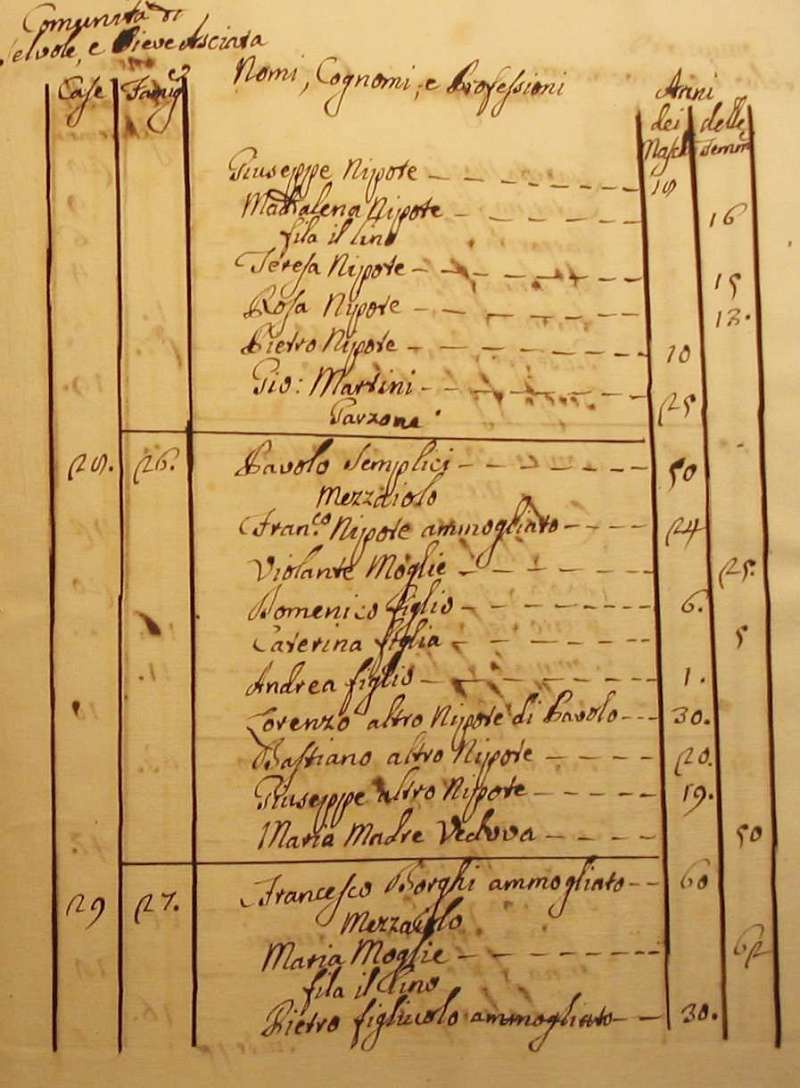 Comunità di
Selvole, e Pieve Asciata
Case Famig.e Nomi, Cognomi, e Professioni Anni
dei delle
Maschi Femm
Giuseppe Nipote 19
Madalena Nipote 16
fila il lino
Teresa Nipote 15
Rosa Nipote 12.
Pietro Nipote 10
Gio: Martini 25
Garzone
26. Pavolo Semplici 50
Mezzaiolo
Fran.co Nipote ammogliato 24
Violante Moglie 25.
Domenico figlio 6.
Caterina figlia 5
Andrea figlio 1.
Lorenzo altro Nipote di Pavolo 30.
Bastiano altro Nipote 20.
Giuseppe altro Nipote 19.
Maria Madre Vedova 50
29 27. Francesco Borghi ammogliato 60
Mezzaiolo
Maria Moglie 62
fila il lino
Pietro figliuolo ammogliato 30.